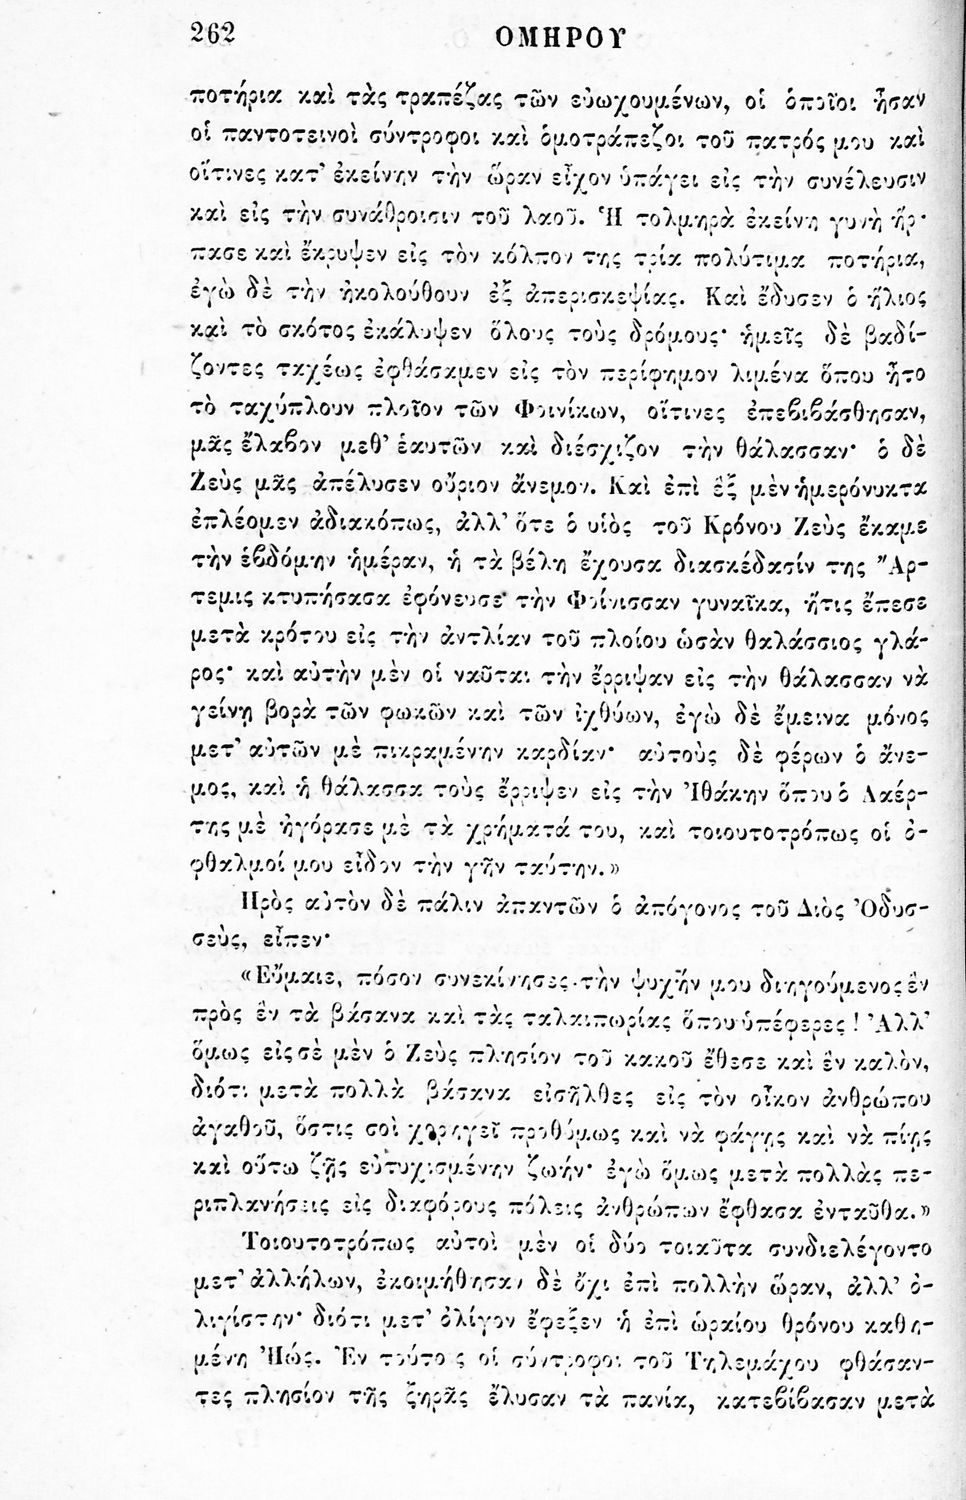 262
ΟΜΗΡΟΥ
ποτήρια καὶ τὰς τραπέζας τῶν εὐωχουμένων, οἱ ὁποῖοι ἦσαν
οἱ παντοτεινοὶ σύντροφοι καὶ ὁμοτράπεζοι τοῦ πατρός μου καὶ
οἵτινες κατ' ἐκείνην τὴν ὥραν εἶχον ὑπάγει εἰς τὴν συνέλευσιν
καὶ εἰς τὴν συνάθροισιν τοῦ λαοῦ. Ἡ τολμηρὰ ἐκείνη γυνὴ ἥρ-
πασε καὶ ἔκρυψεν εἰς τὸν κόλπον της τρία πολύτιμα ποτήρια,
ἐγὼ δὲ τὴν ἠκολούθουν ἐξ ἀπερισκεψίας. Καὶ ἔδυσεν ὁ ἥλιος
καὶ τὸ σκότος ἐκάλυψεν ὅλους τοὺς δρόμους· ἡμεῖς δὲ βαδί-
ζοντες ταχέως ἐφθάσαμεν εἰς τὸν περίφημον λιμένα ὅπου ἦτο
τὸ ταχύπλουν πλοῖον τῶν Φοινίκων, οἵτινες ἐπεβιβάσθησαν,
μᾶς ἔλαβον μεθ' ἑαυτῶν καὶ διέσχιζον τὴν θάλασσαν· ὁ δὲ
Ζεὺς μᾶς ἀπέλυσεν οὔριον ἄνεμον. Καὶ ἐπὶ ἓξ μὲν ἡμερόνυκτα
ἐπλέομεν ἀδιακόπως, ἀλλ' ὅτε ὁ υἱὸς τοῦ Κρόνου Ζεὺς ἔκαμε
τὴν ἑβδόμην ἡμέραν, ἡ τὰ βέλη ἔχουσα διασκέδασίν της Ἄρ-
τεμις κτυπήσασα ἐφόνευσε τὴν Φοίνισσαν γυναῖκα, ἥτις ἔπεσε
μετὰ κρότου εἰς τὴν ἀντλίαν τοῦ πλοίου ὡσὰν θαλάσσιος γλά-
ρος· καὶ αὐτὴν μὲν οἱ ναῦται τὴν ἔρριψαν εἰς τὴν θάλασσαν νὰ
γείνῃ βορὰ τῶν φωκῶν καὶ τῶν ἰχθύων, ἐγὼ δὲ ἔμεινα μόνος
μετ' αὐτῶν μὲ πικραμένην καρδίαν· αὐτοὺς δὲ φέρων ὁ ἄνε-
μος, καὶ ἡ θάλασσα τοὺς ἔρριψεν εἰς τὴν Ἰθάκην ὅπου ὁ Λαέρ-
της μὲ ἠγόρασε μὲ τὰ χρήματά του, καὶ τοιουτοτρόπως οἱ ὀ-
φθαλμοί μου εἶδον τὴν γῆν ταύτην.»
Πρὸς αὐτὸν δὲ πάλιν ἀπαντῶν ὁ ἀπόγονος τοῦ Διὸς Ὀδυσ-
σεὺς, εἶπεν·
«Εὔμαιε, πόσον συνεκίνησες τὴν ψυχήν μου διηγούμενος ἓν
πρὸς ἓν τὰ βάσανα καὶ τὰς ταλαιπωρίας ὅπου ὑπέφερες! Ἀλλ'
ὅμως εἰς σὲ μὲν ὁ Ζεὺς πλησίον τοῦ κακοῦ ἔθεσε καὶ ἓν καλὸν,
διότι μετὰ πολλὰ βάσανα εἰσῆλθες εἰς τὸν οἶκον ἀνθρώπου
ἀγαθοῦ, ὅστις σοὶ χορηγεῖ προθύμως καὶ νὰ φάγῃς καὶ νὰ πίῃς
καὶ οὕτω ζῇς εὐτυχισμένην ζωήν· ἐγὼ ὅμως μετὰ πολλὰς πε-
ριπλανήσεις εἰς διαφόρους πόλεις ἀνθρώπων ἔφθασα ἐνταῦθα.»
Τοιουτοτρόπως αὐτοὶ μὲν οἱ δύο τοιαῦτα συνδιελέγοντο
μετ' ἀλλήλων, ἐκοιμήθησαν δὲ ὄχι ἐπὶ πολλὴν ὥραν, ἀλλ' ὀ-
λιγίστην· διότι μετ' ὀλίγον ἔφεξεν ἡ ἐπὶ ὡραίου θρόνου καθη-
μένη Ἠώς. Ἐν τούτοις οἱ σύντροφοι τοῦ Τηλεμάχου φθάσαν-
τες πλησίον τῆς ξηρᾶς ἔλυσαν τὰ πανία, κατεβίβασαν μετὰ